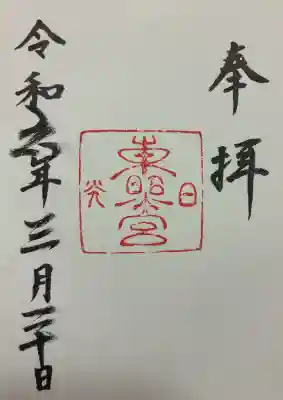 奉拝
日光
東照宮
令和六年三月二十日